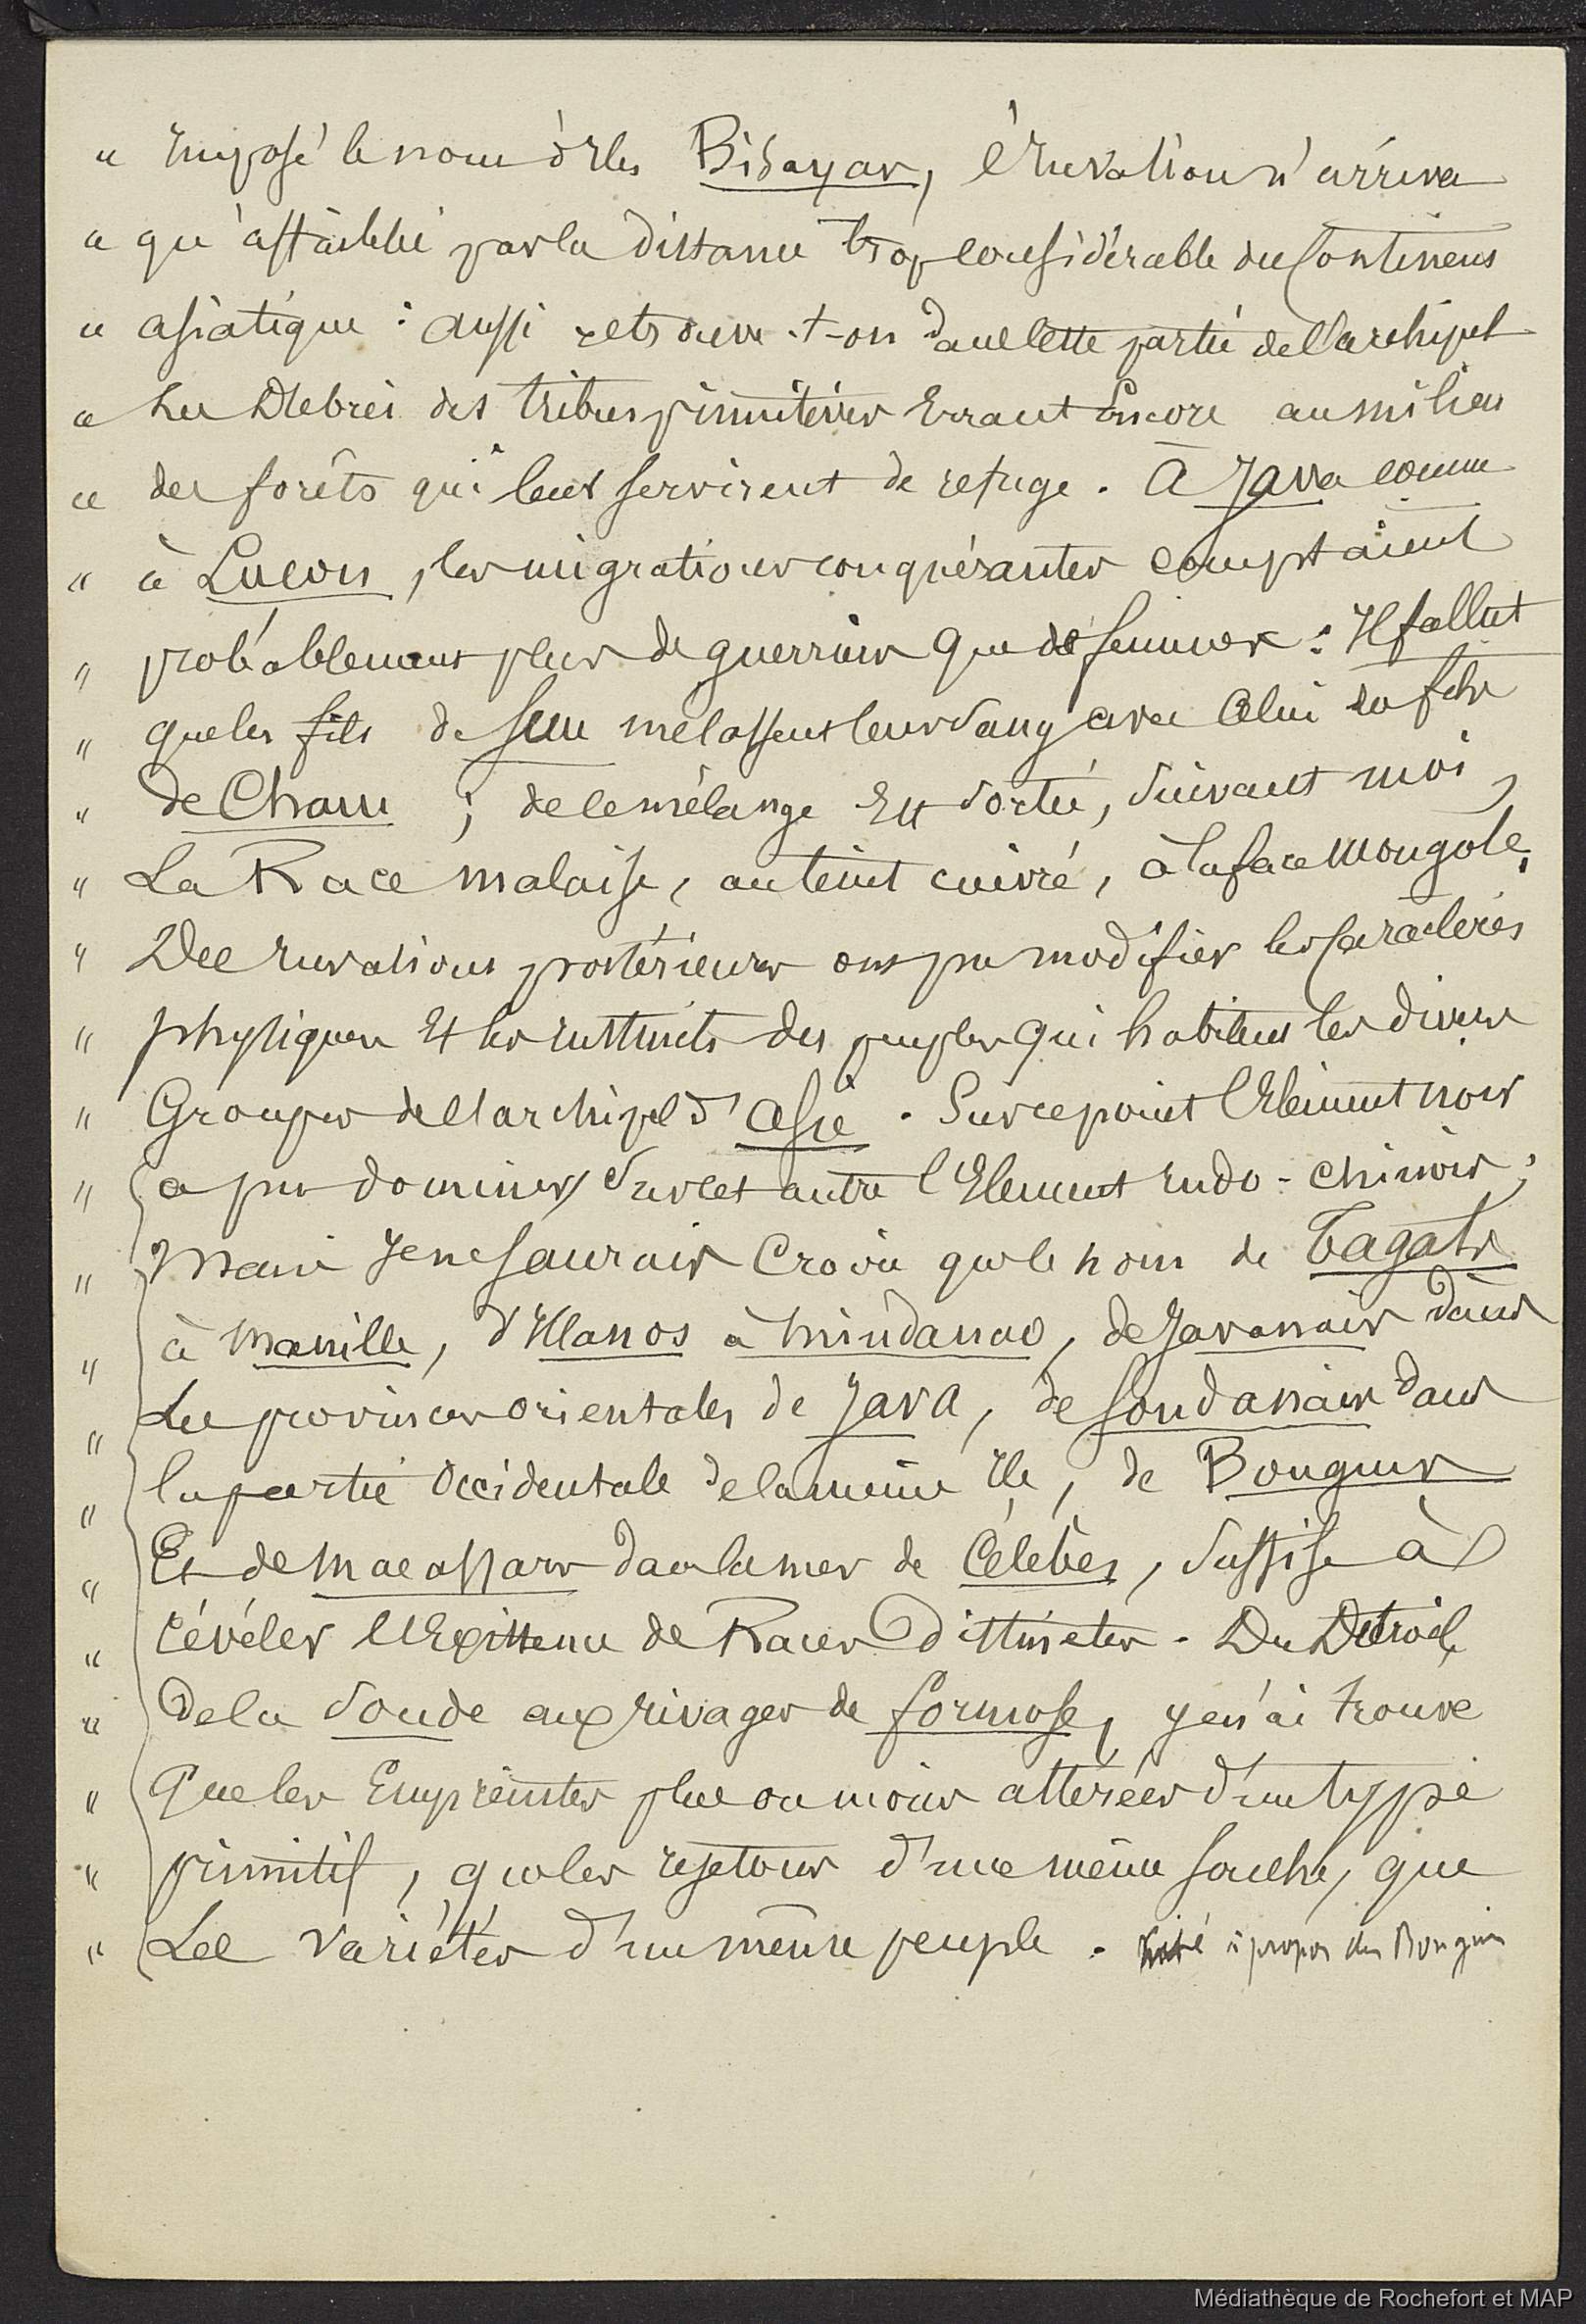 " Imposé le nom d'Iles Bisayas, l'Invation n'arriva
" qu'affaiblie par la distance trop considérable du Continent
" asiatique : aussi retrouve-t-on dans cette partie de l'archipel
" Les Débris des tribus primitives Errant Encore au milieu
" des forêts qui leur servirent de refuge. à Java comme
" à Luçon, les migrations conquérantes comptaient
" probablement plus de guerriers que de femmes : Il fallut
" que les fils de Sem mélassent leur sang avec celui des fils
" de Cham ; de ce mélange Est sortie, suivant moi,
" La Race malaise, au teint cuivré, à la face mongole.
" Des Invasions postérieures ont pu modifier les Caractères
" physiques Et les instincts des peuples qui habitent les divers
" Groupes de l'archipel d'Asie. Sur ce point l'Elément noir
" a pu dominer, sur cet autre l'Elément Indo-chinois ;
" Mais Je ne saurais Croire que le nom de Tagals
" à Manille, d'Illanos à Mindanao, de Javanais dans
" Les provinces orientales de Java, de Sondanais dans
" la partie Occidentale de la même Ile, de Bouguis
" Et de Macassars dans la mer de Célèbes, suffise à
" révéler l'Existence de Races distinctes. Du Détroit
" De la Sonde aux rivages de formose, je n'ai trouvé
" Que les Empreintes plus ou moins altérées d'un type
" primitif, que les rejetons d'une même souche, que
" Les variétés d'un même peuple. à propos des Bouguis
Médiathèque de Rochefort et MAP